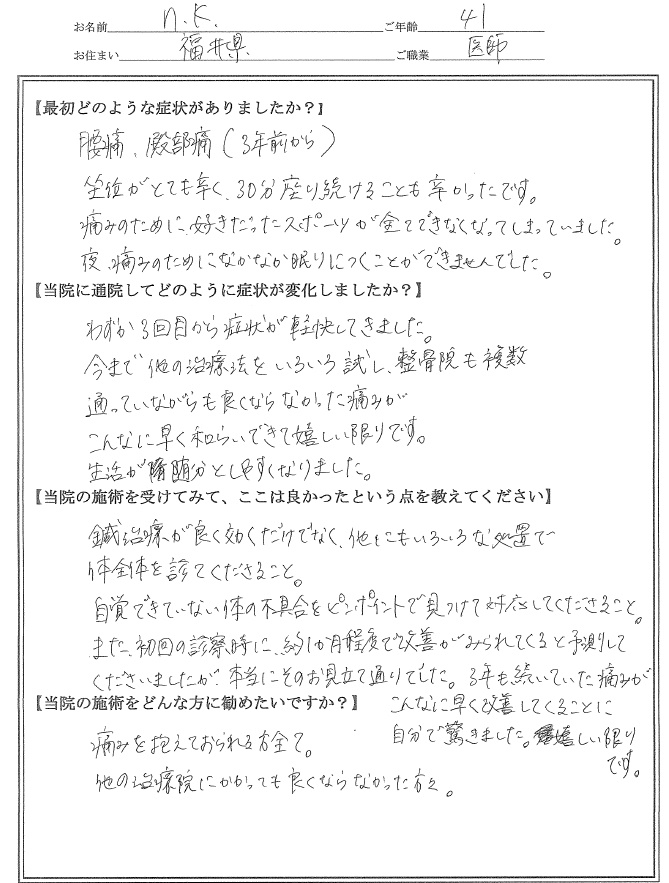 お名前 n.K. ご年齢 41
お住まい 福井県 ご職業 医師
【最初どのような症状がありましたか？】
腰痛、殿部痛（3年前から）
坐位がとても辛く、30分座り続けることも辛かったです。
痛みのために、好きだったスポーツが全てできなくなってしまっていました。
夜、痛みのためになかなか眠りにつくことができませんでした。
【当院に通院してどのように症状が変化しましたか？】
わずか3回目から症状が軽快してきました。
今まで他の治療法をいろいろ試し、整骨院も複数
通っていながらも良くならなかった痛みが
こんなに早く和らいできて嬉しい限りです。
生活が随分としやすくなりました。
【当院の施術を受けてみて、ここは良かったという点を教えてください】
鍼治療が良く効くだけでなく、他にもいろいろな処置で
体全体を診てくださること。
自覚できていない体の不具合をピンポイントで見つけて対応してくださること。
また、初回の診察時に、約1か月程度で改善がみられてくると予測して
くださいましたが、本当にそのお見立て通りでした。3年も続いていた痛みが
こんなに早く改善してくることに
自分で驚きました。嬉しい限り
です。
【当院の施術をどんな方に勧めたいですか？】
痛みを抱えておられる方全て。
他の治療院にかかっても良くならなかった方々。